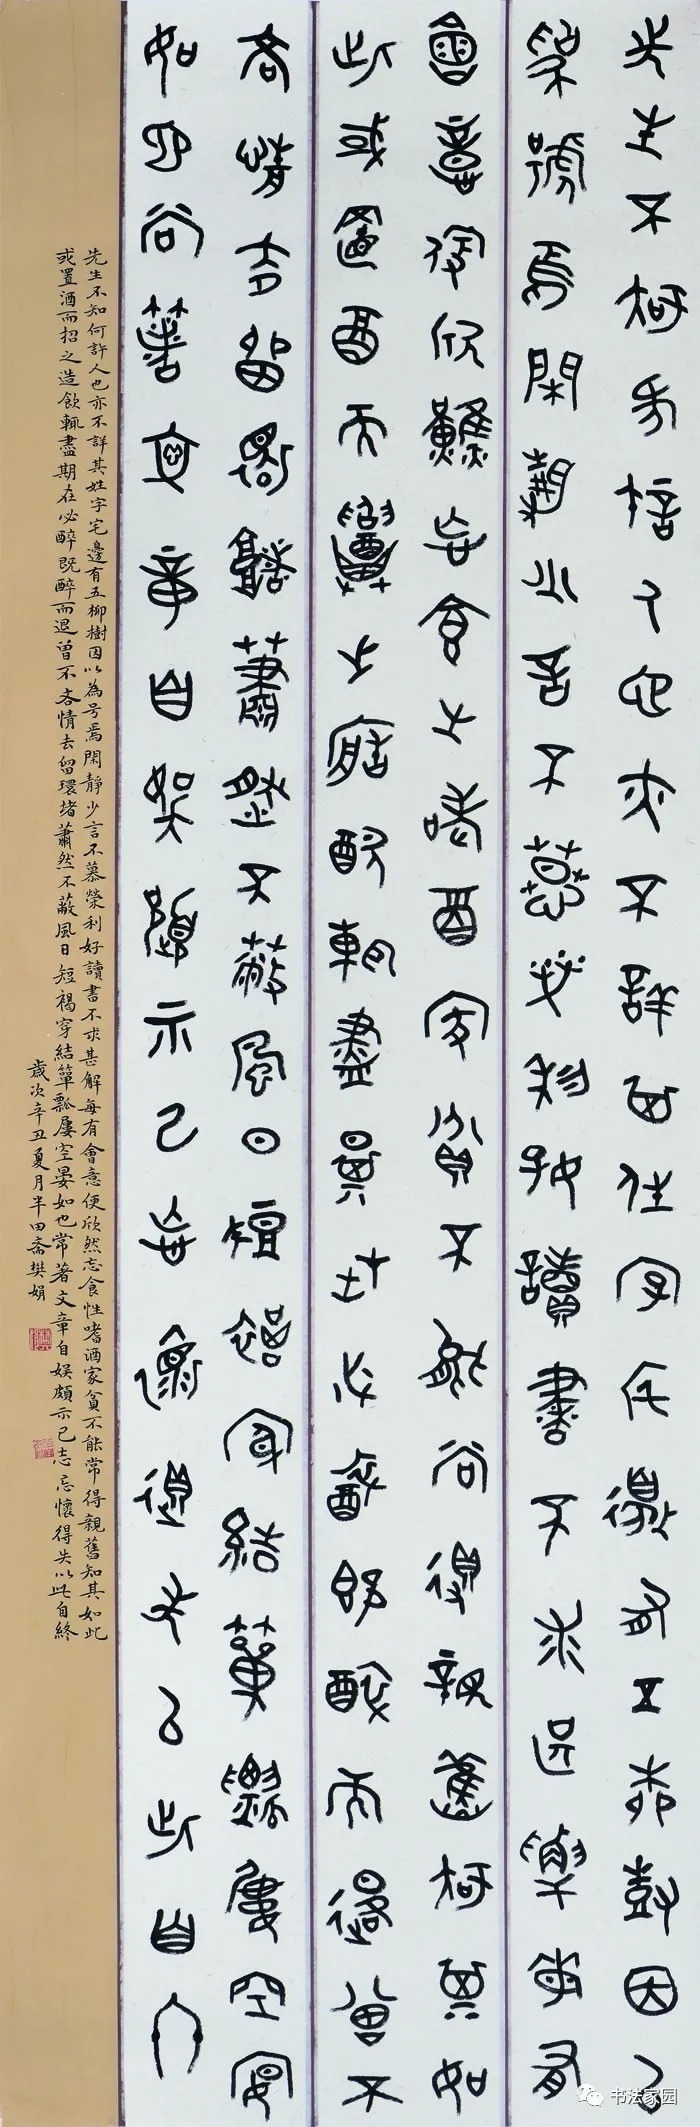 先生不知何許人也亦不詳其姓字宅邊有五柳樹因以
為號焉閑靜少言不慕榮利好讀書不求甚解每有
會意便欣然忘食性嗜酒家貧不能常得親舊知其如
此或置酒而招之造飲輒盡期在必醉既醉而退曾不
吝情去留環堵蕭然不蔽風日短褐穿結簞瓢屢空晏
如也常著文章自娛頗示己忘懷得失以此自終
先生不知何許人也亦不詳其姓字宅邊有五柳樹因以為号焉閑靜少言不慕榮利好讀書不求甚解每有會意便欣然忘食性嗜酒家貧不能常得親舊知其如此
或置酒而招之造飲輒盡期在必醉既醉而退曾不吝情去留環堵蕭然不蔽風日短褐穿結簞瓢屢空晏如也常著文章自娛頗示己志忘懷得失以此自終
歲次辛丑夏月半田斋樊娟
书法家园